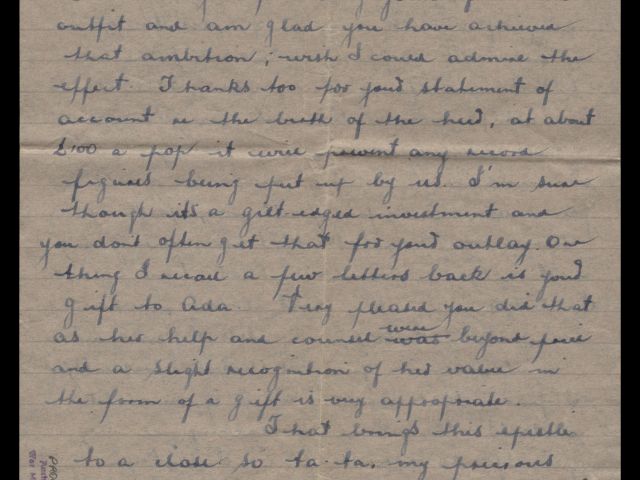 outfit and am glad you have achieved
that ambition; wish I could admire the
effect. Thanks too for your statement of
account re the birth of the heir, at about
£100 a pop it will prevent any record
figures being put up by us. I'm sure
though it's a gilt-edged investment and
you don't often get that for your outlay. One
thing I recall a few letters back is your
gift to Ada. Very pleased you did that
as her help and counsel was were beyond price
and a slight recognition of her value in
the form of a gift is very appropriate.
That brings this epistle
to a close so ta-ta, my precious